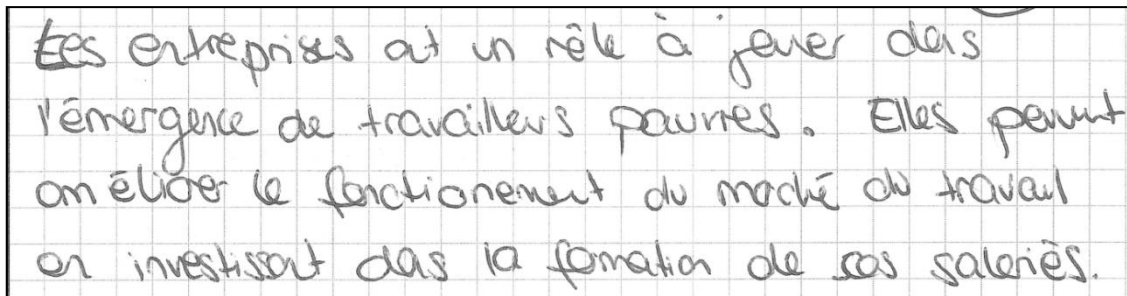 Les entreprises ont un rôle à jouer dans
l'émergence de travailleurs pauvres. Elles peuvent
améliorer le fonctionement du marché du travail
en investissant dans la formation de ses salariés.